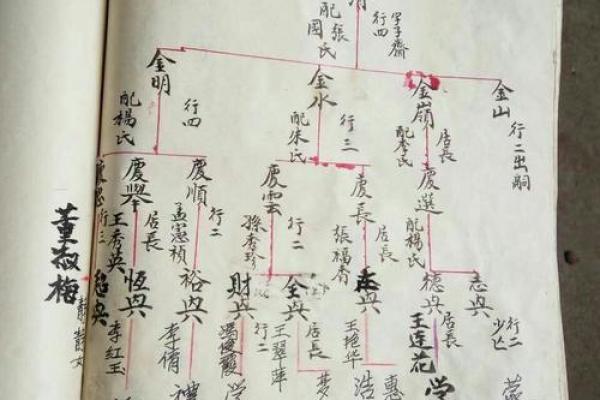 字子齋
行四
配張
國氏
金山
行二出嗣
金嶺
居長
配李氏
金水
行三
配朱氏
金明
行四
配楊氏
慶選
配楊氏
慶長
居長
張福香
慶雲
行二
孫秀珍
慶順
行二
孟憲楨
慶舉
居長
王秀英
行三
董淑梅
志典
行二
少亡
德典
居長
王連花
典
王艳华
全典
居長
王翠萍
財典
行二
馮俊霞
裕典
李倩
恆典
李红玉
典
惠
浩
梦
学
禮
学